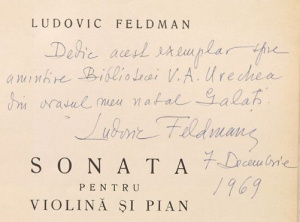 LUDOVIC FELDMAN
Dedic acest exemplar spre
amintire Bibliotecei V. A. Urechea
din orașul meu natal Galați.
Ludovic Feldman
7 Decembrie
1969
SONATA
PENTRU
VIOLINĂ ȘI PIAN